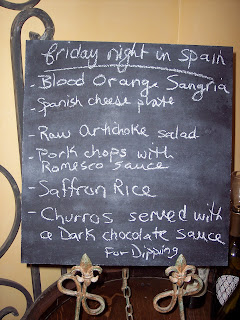 friday night in spain
- Blood Orange Sangria
- Spanish cheese plate
- Raw Artichoke salad
- Pork chops with
Romesco sauce
- Saffron Rice
- Churros served with
a Dark chocolate sauce
For Dipping